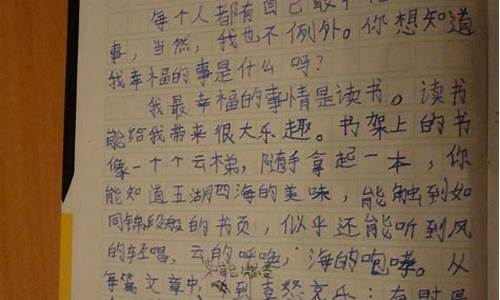 每个人都有自己最
事,当然,我也不例外。你想知道
我幸福的事是什么吗?
我最幸福的事情是读书。读书
能给我带来很大乐趣。书架上的书
像一个个云梯,随手拿起一本,你
能知道五湖四海的美味,能触到如
同锦段般的书页,似乎还能听到风
的轻唱,云的呼唤,海的咆哮。从
每篇文章中,能感受到喜怒哀乐;有时